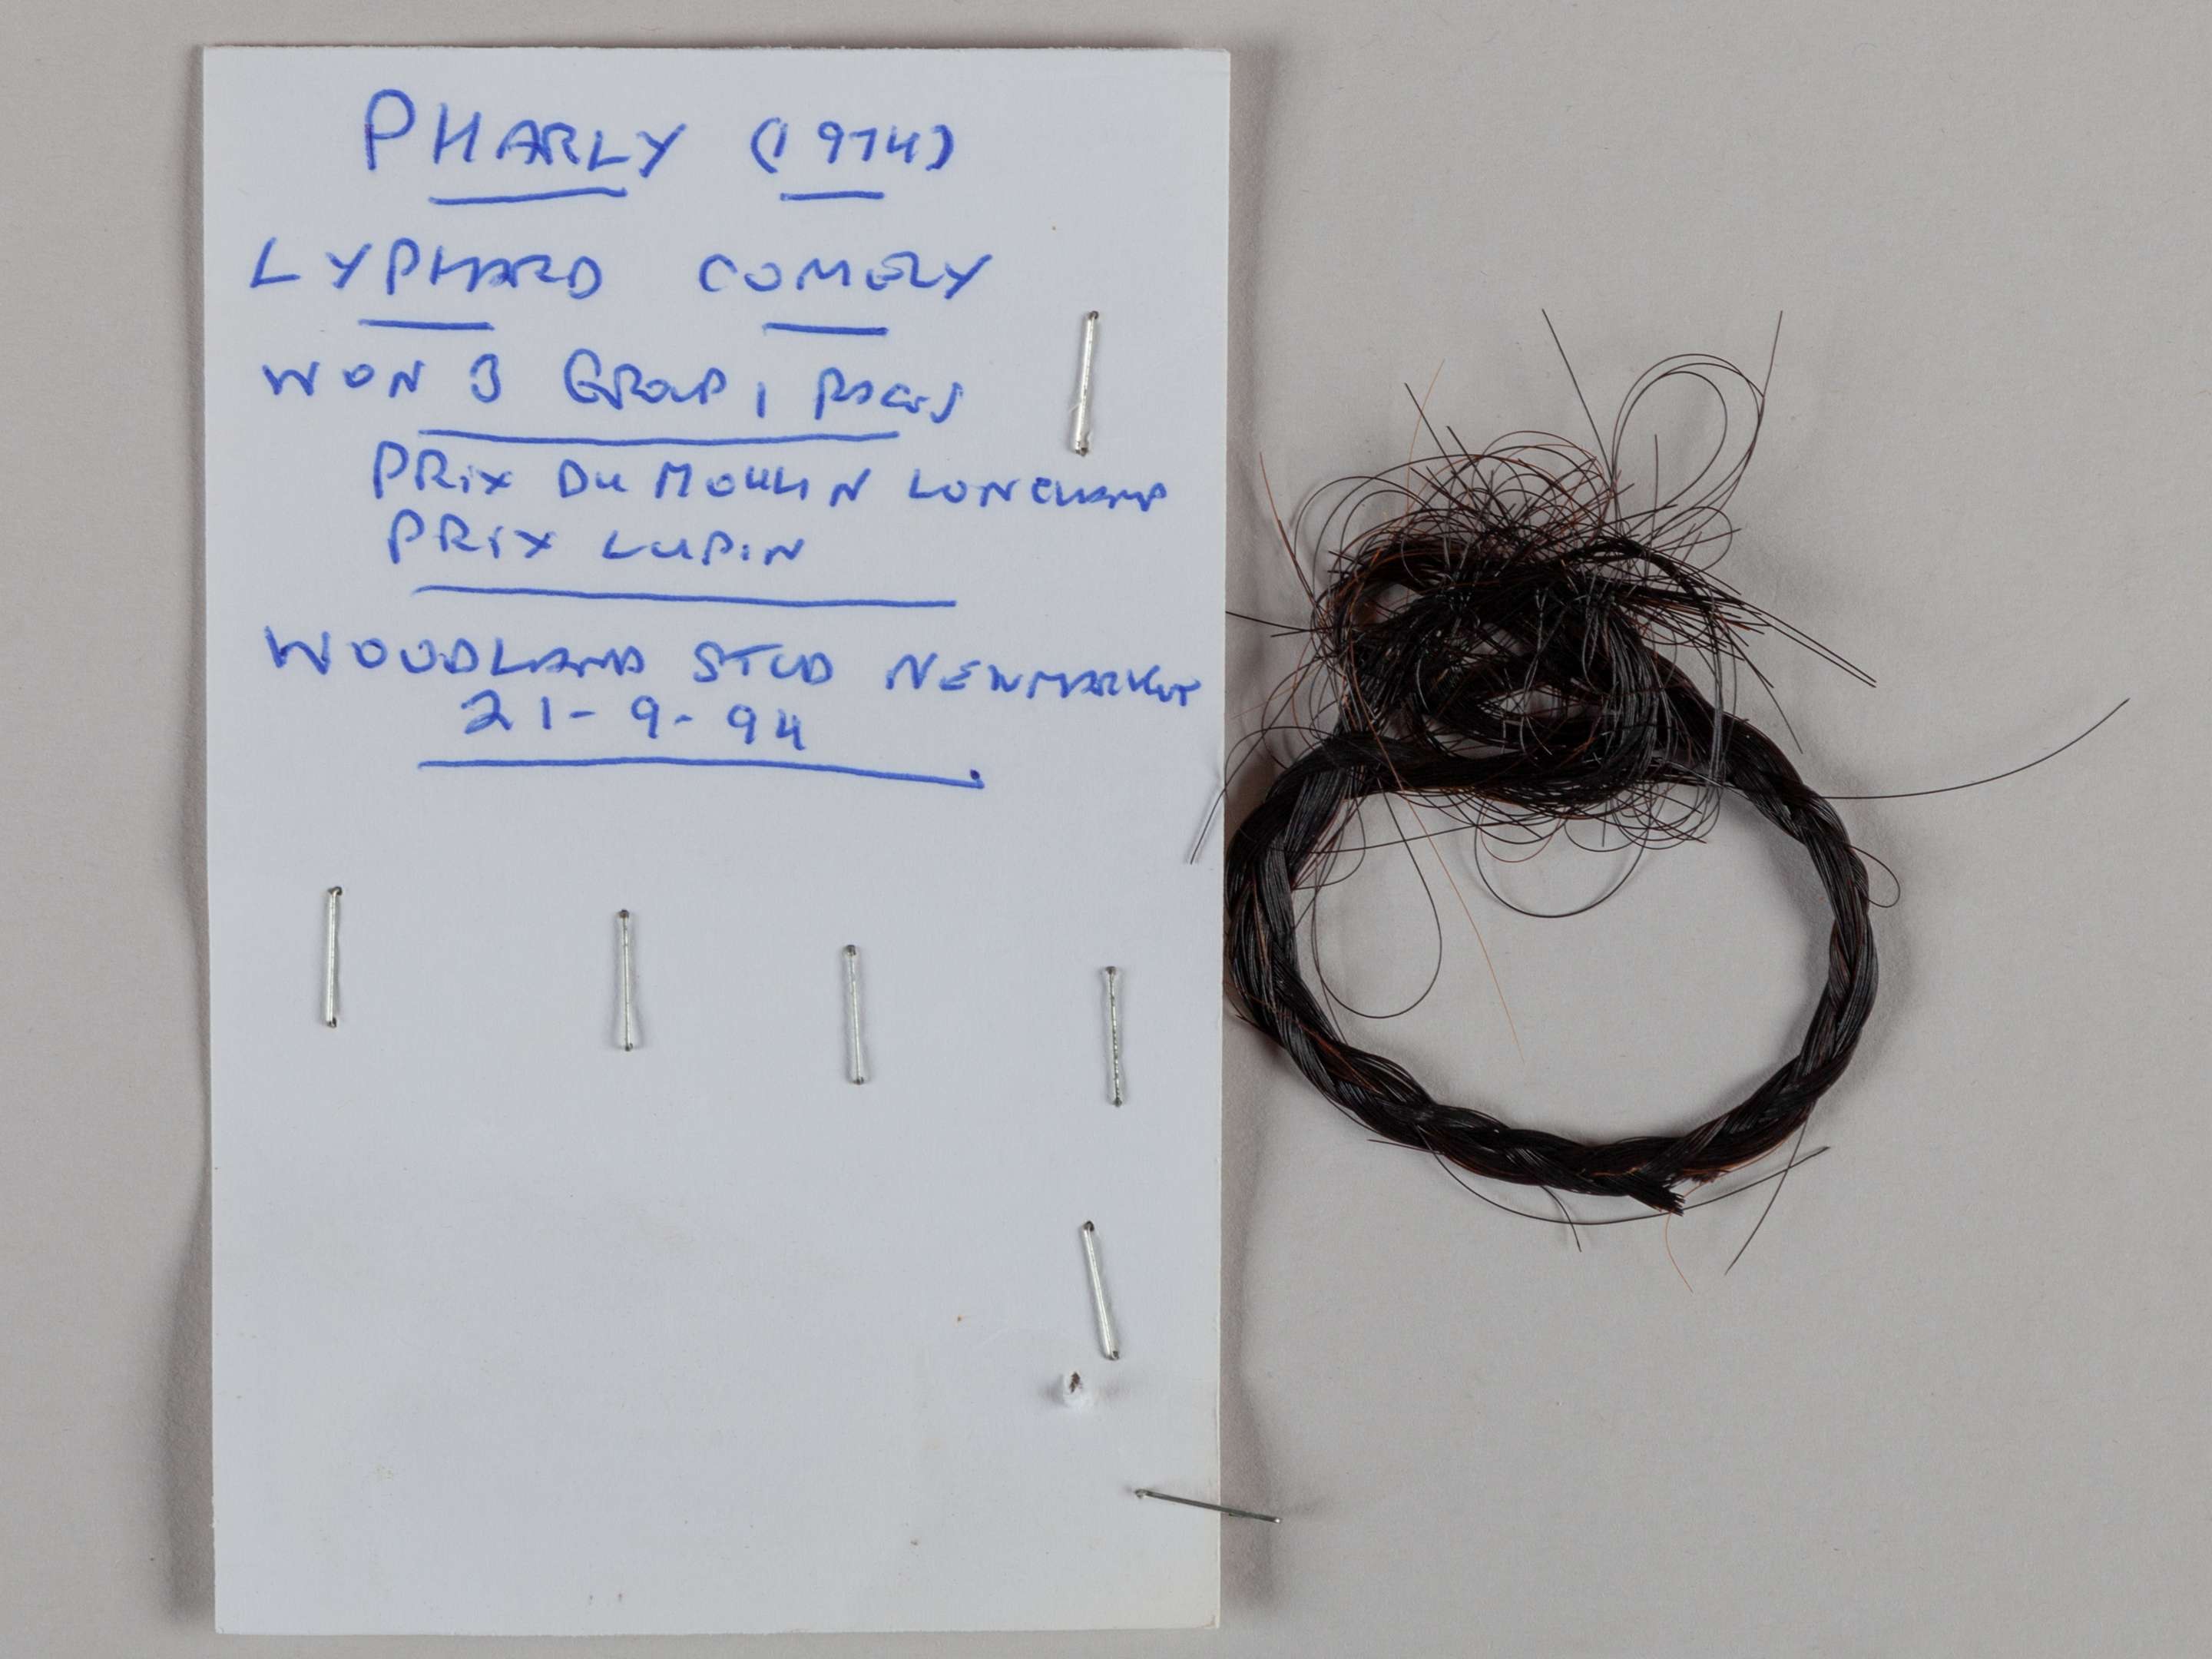 PHARLY (1974)
LYPHARD COMELY
WON 3 GROUP 1 RACES
PRIX DU MOULIN LONCHAMP
PRIX LUPIN
WOODLAND STUD NEWMARKET
21-9-94